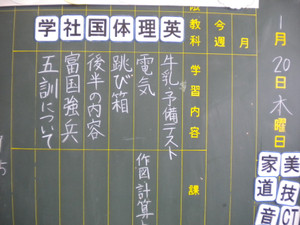 学社国体理英
月
今週
教科
学習内容
課
牛乳予備テスト
電気
跳び箱
後半の内容
富国強兵
五訓について
作図計算
1月20日木曜日
美技CT
家道音